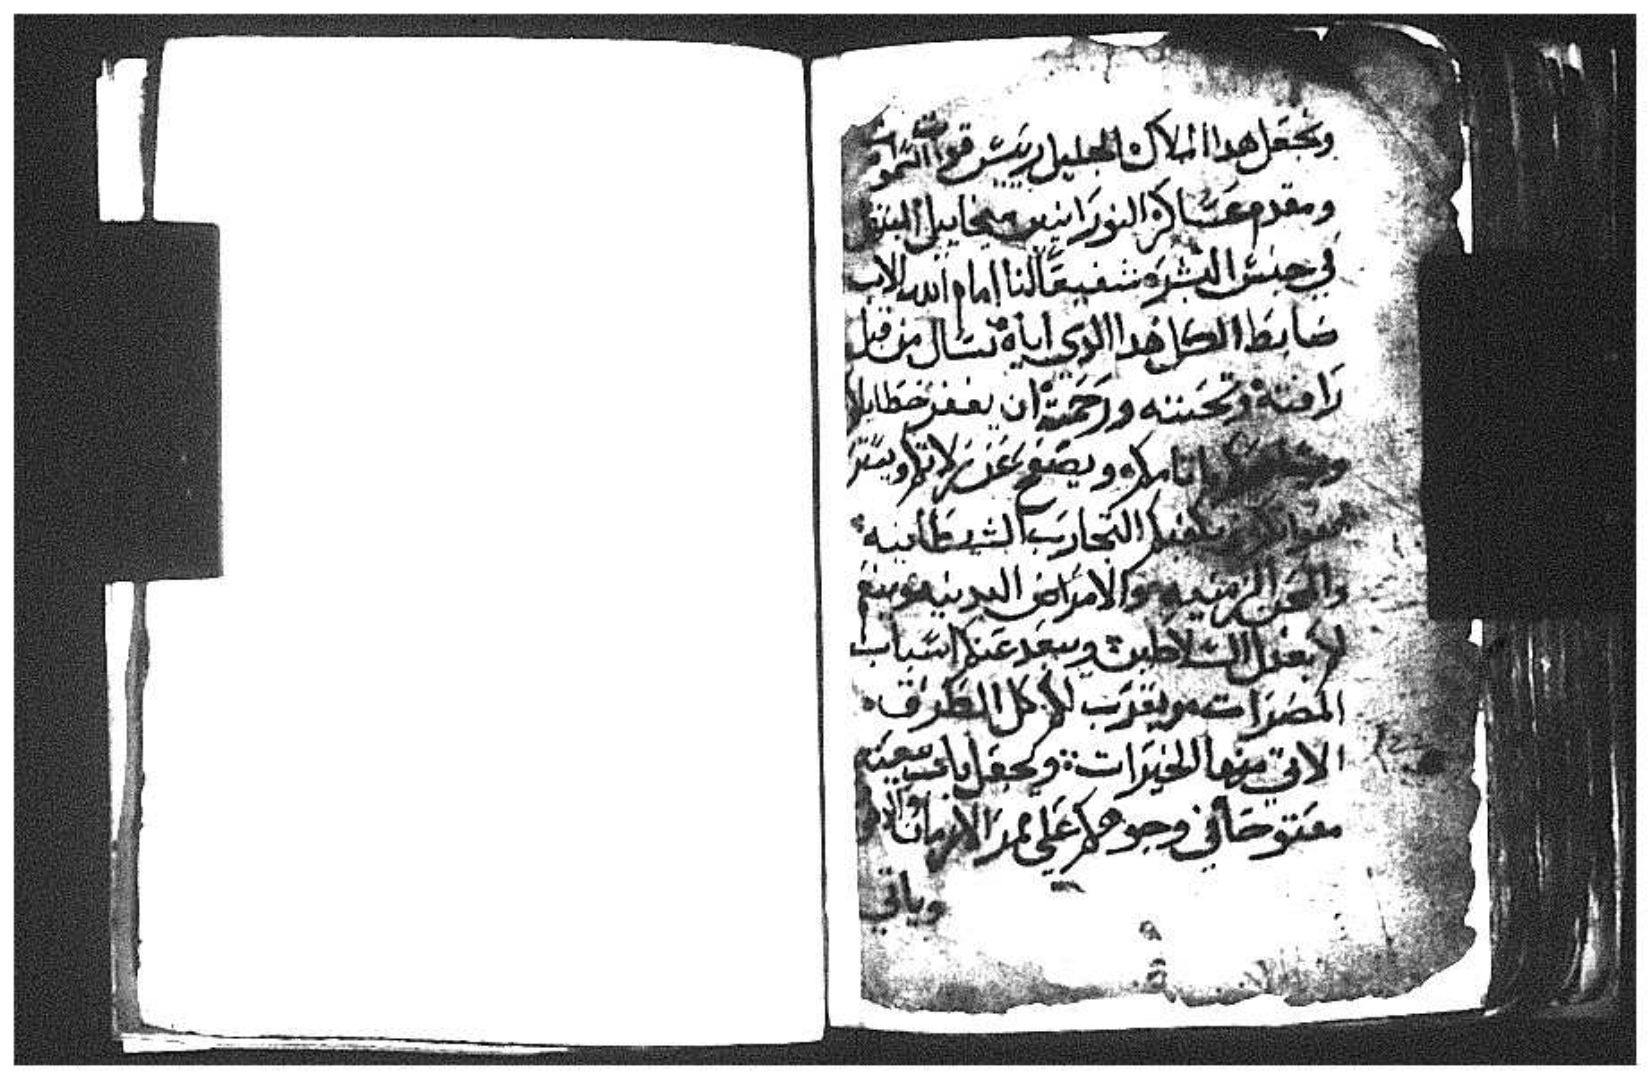 ويجعل هدا الملاك الجليل رييس قوات السموات
ومقدم عساكر النورانيين ميخاييل
في جنس البشره شفيعا لنا امام الله الاب
ضابط الكل هدا الدي اياه نسال من قبل
رافته وتحننه ورحمته ان يغفر خطاياكم
ويصفح عن زلاتكم ويستر
التجارب الشيطانيه
والمحن الزمنيه والامراض البدنيه
السلاطين ويبعد عنكم اسباب
المضرات ويقرب لكم كل الطرق
الاتي منها الخيرات ويجعل باب بيعته
مفتوحا في وجوهكم علي ممر الازمان
وياتي